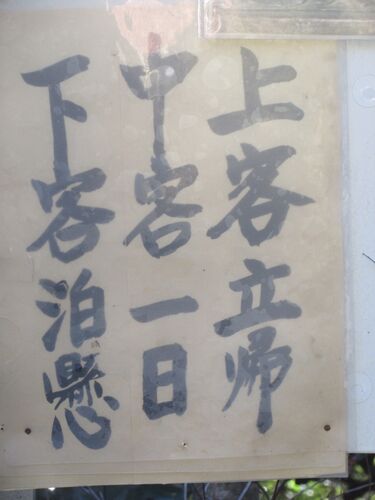 上客立帰
中客一日
下客泊懸